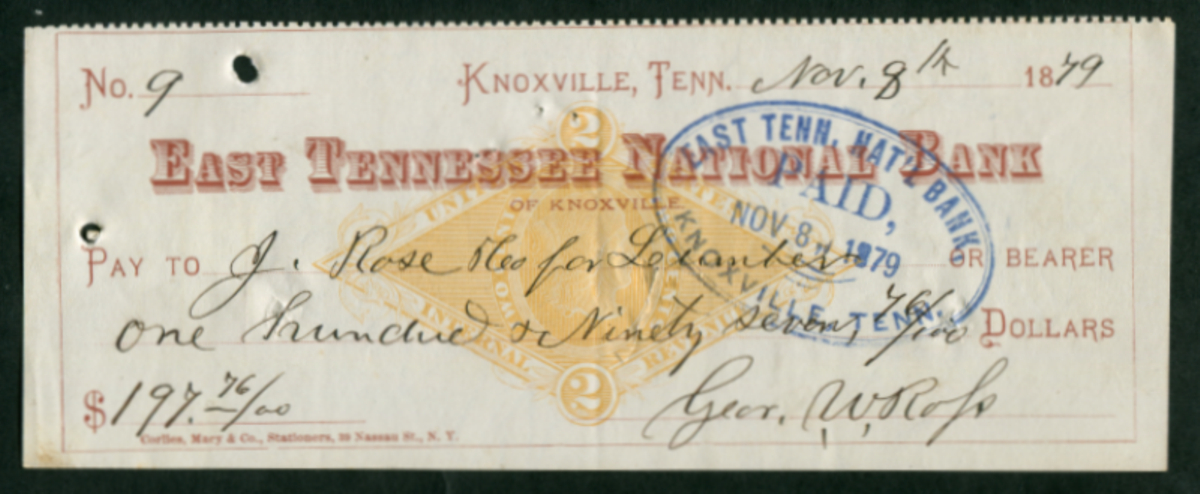 No. 9 Knoxville, Tenn. Nov. 8th 1879
East Tennessee National Bank
of Knoxville
Pay to J. Rose for or bearer
one hundred & Ninety seven 76/100 Dollars
$197.76/00
Geor. W. Ross
Corlies, Macy & Co., Stationers, 39 Nassau St., N. Y.
2
UNITED STATES
INTERNAL REVENUE
2
EAST TENN. NAT'L BANK
PAID,
NOV 8 1879
KNOXVILLE, TENN.